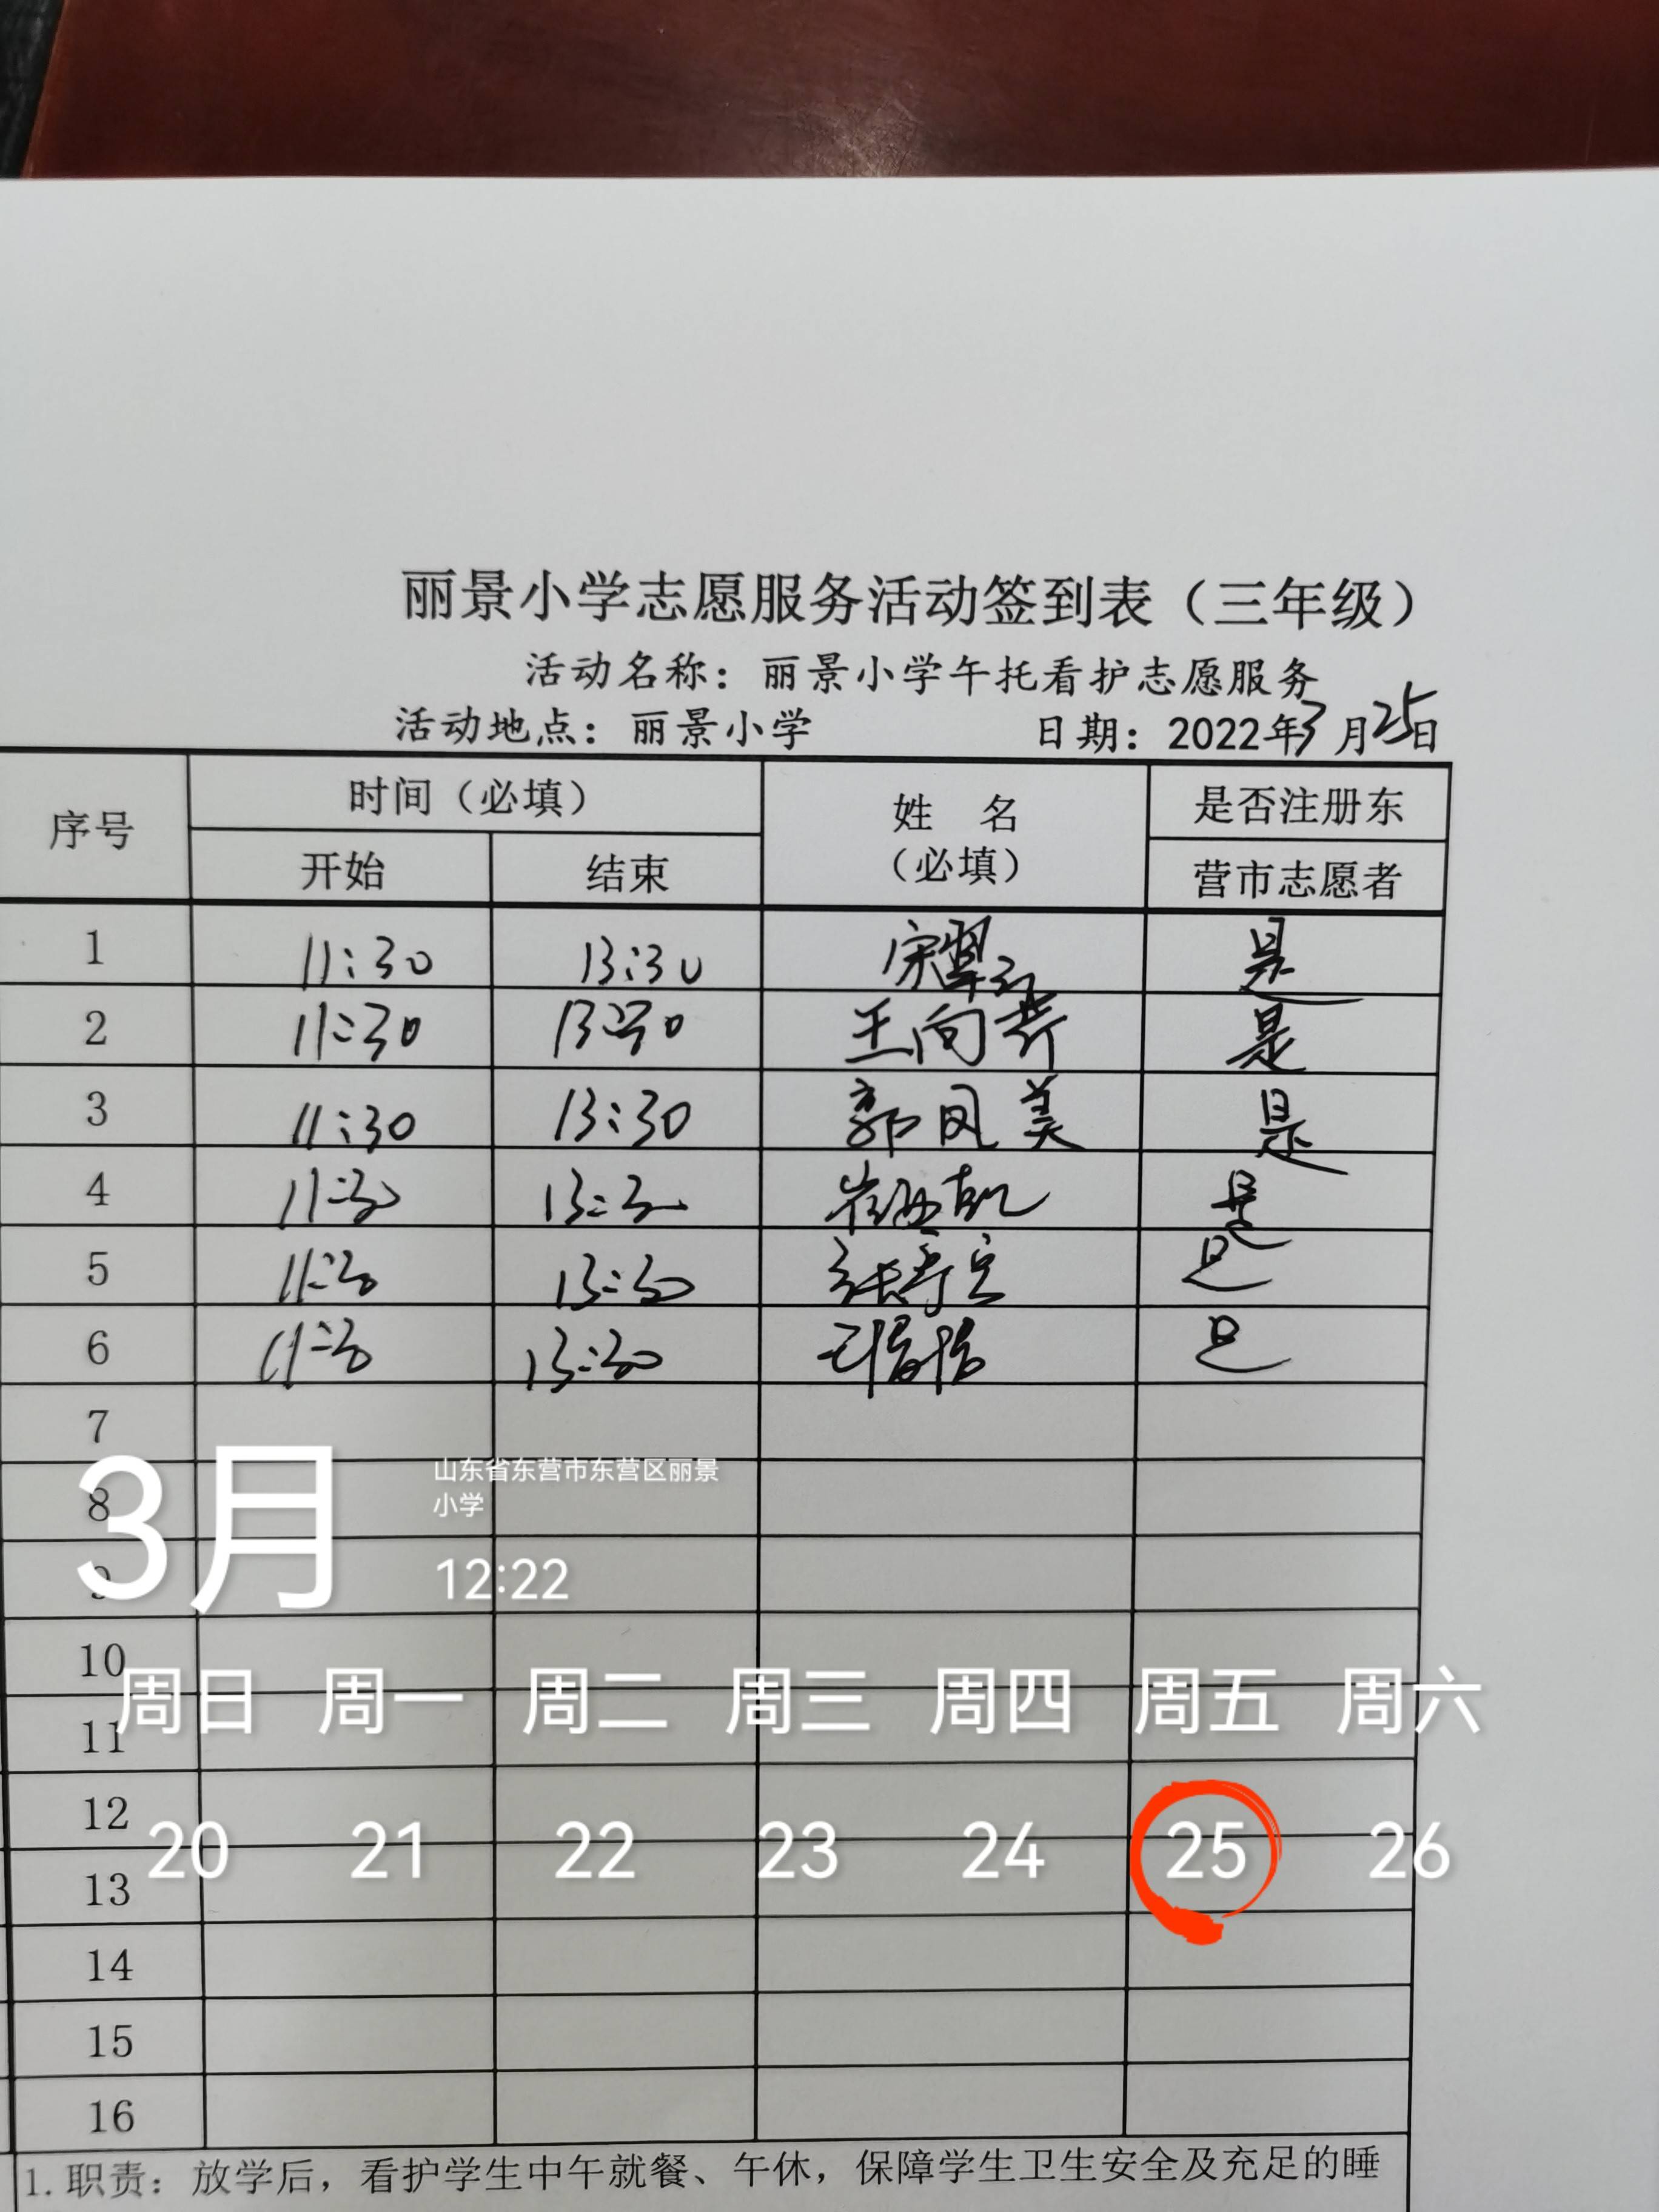 丽景小学志愿服务活动签到表（三年级）
活动名称：丽景小学午托看护志愿服务
活动地点：丽景小学 日期：2022年3月25日
序号 时间（必填） 姓 名（必填） 是否注册东营市志愿者
开始 结束
1 11:30 13:30 宋翠红 是
2 11:30 13:30 王向荣 是
3 11:30 13:30 郭凤美 是
4 11:30 13:30 崔 是
5 11:30 13:30 张秀 是
6 11:30 13:30 是
7
8
9
10
11
12
13
14
15
16
1.职责：放学后，看护学生中午就餐、午休，保障学生卫生安全及充足的睡
3月
山东省东营市东营区丽景
小学
12:22
周日 周一 周二 周三 周四 周五 周六
20 21 22 23 24 25 26